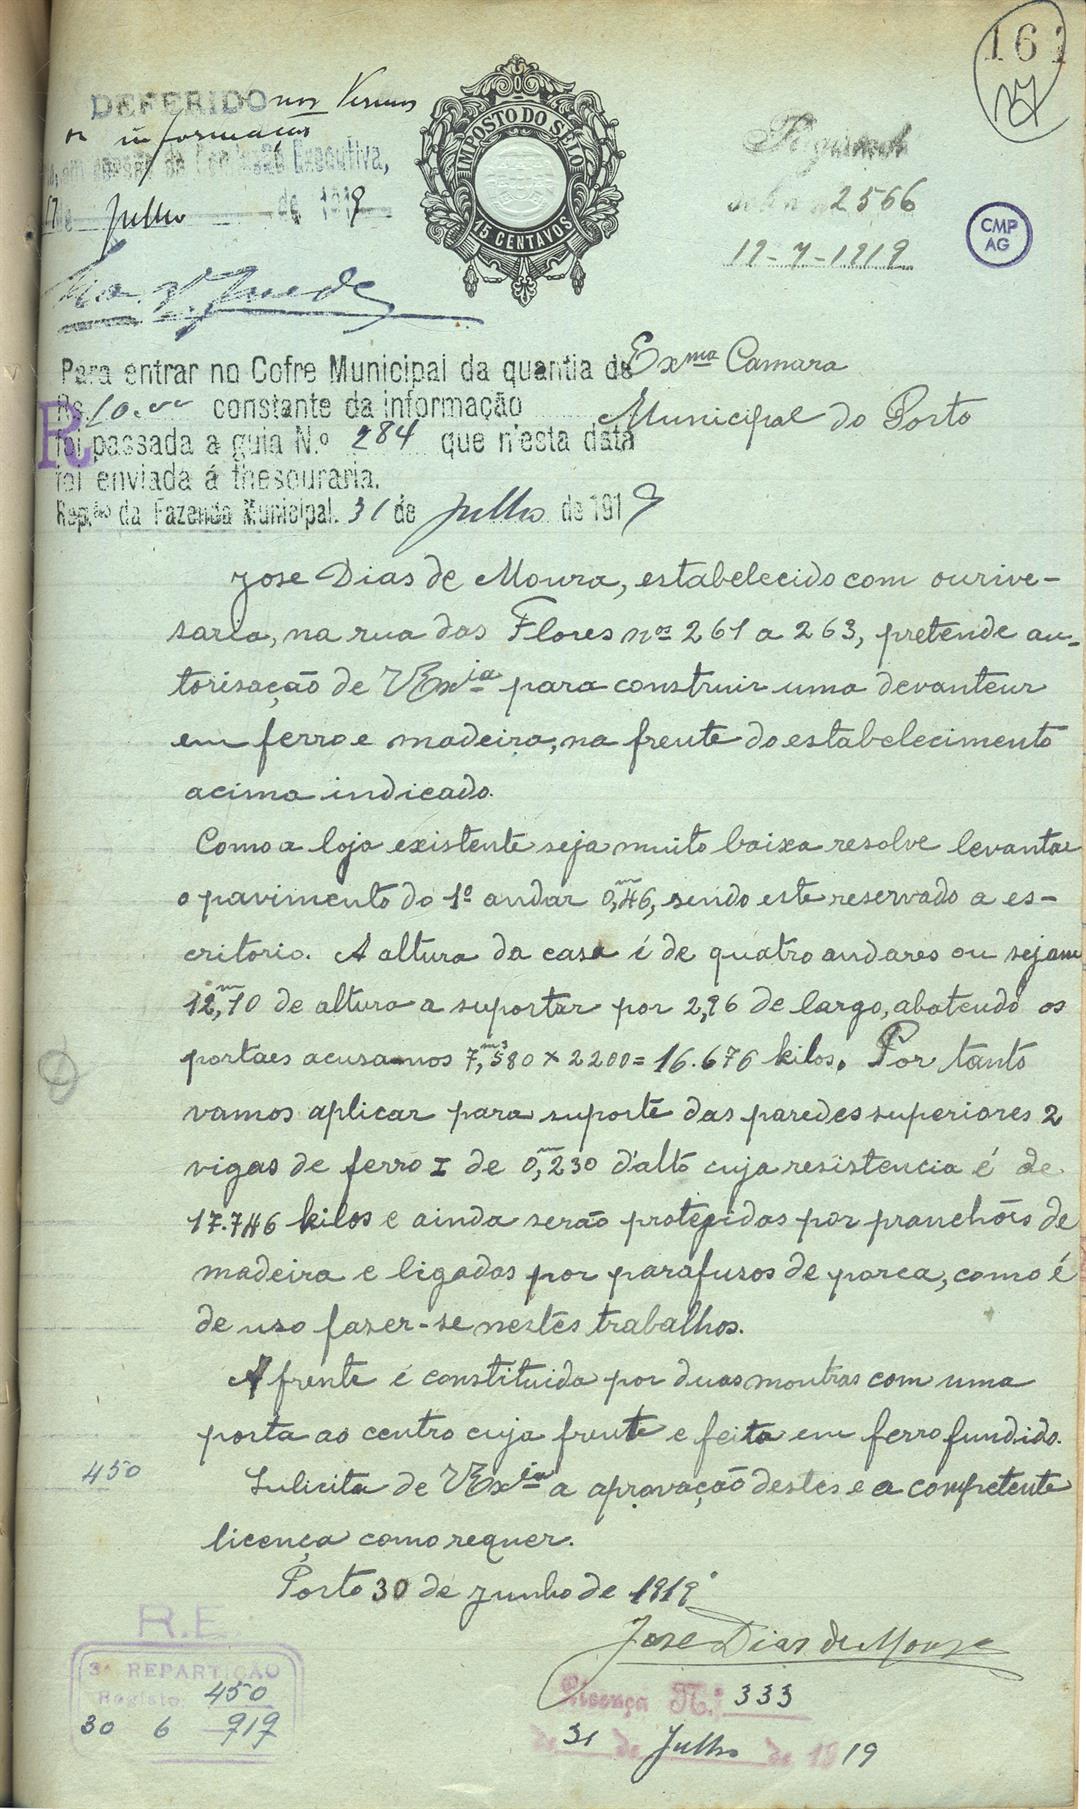 161
DEFERIDO nos termos
informações
em sessão da Comissão Executiva,
17 de Julho de 1919
IMPOSTO DO SELO
15 CENTAVOS
2566
17-7-1919
CMP
AG
Para entrar no Cofre Municipal da quantia de
Rs. 10.00 constante da informação
foi passada a guia N.º 284 que n'esta data
foi enviada á thesouraria.
Rep.ão da Fazenda Municipal. 31 de Julho de 1919
R
Exma Camara
Municipal do Porto
Jose Dias de Moura, estabelecido com ourive-
saria, na rua das Flores nos 261 a 263, pretende au-
torisação de VExia para construir uma devanteur
em ferro e madeira, na frente do estabelecimento
acima indicado.
Como a loja existente seja muito baixa resolve levantar
o pavimento do 1º andar 0,m46, sendo este reservado a es-
critorio. A altura da casa é de quatro andares ou sejam
12,m10 de altura a suportar por 2,96 de largo, abatendo os
portaes acusamos 7,m3580 x 2200 = 16.676 kilos. Por tanto
vamos aplicar para suporte das paredes superiores 2
vigas de ferro I de 0,m230 d'alto cuja resistencia é de
17.746 kilos e ainda serão protegidas por pranchões de
madeira e ligadas por parafusos de porca, como é
de uso fazer-se nestes trabalhos.
A frente é constituida por duas montras com uma
porta ao centro cuja frente e feita em ferro fundido.
450
Sulicita de VExia a aprovação destes e a competente
licença como requer.
Porto 30 de junho de 1919
Jose Dias de Moura
R.E.
3ª REPARTIÇÃO
Registo 450
30 6 919
Licença N.º 333
de 31 de Julho de 1919